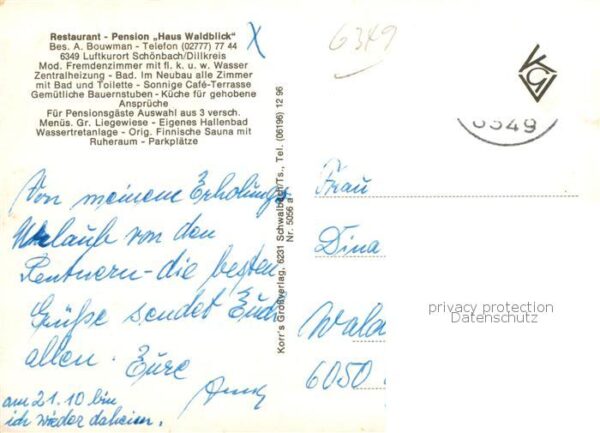 Restaurant - Pension „Haus Waldblick"
Bes. A. Bouwman - Telefon (02777) 77 44
6349 Luftkurort Schönbach/Dillkreis
Mod. Fremdenzimmer mit fl. k. u. w. Wasser
Zentralheizung - Bad. Im Neubau alle Zimmer
mit Bad und Toilette - Sonnige Café-Terrasse
Gemütliche Bauernstuben - Küche für gehobene
Ansprüche
Für Pensionsgäste Auswahl aus 3 versch.
Menüs. Gr. Liegewiese - Eigenes Hallenbad
Wassertretanlage - Orig. Finnische Sauna mit
Ruheraum - Parkplätze
X
Von meinem Erholungs
Urlaub von den
Rentnern - die besten
Grüße sendet Euch
allen. Eure
am 21.10 bin
ich wieder daheim.
Korr's Großverlag, 6231 Schwalbach/Ts., Tel. (06196) 12 96
Nr. 5056 a
6349
KGV
6349
Frau
Dina
Wald
6050
privacy protection
Datenschutz